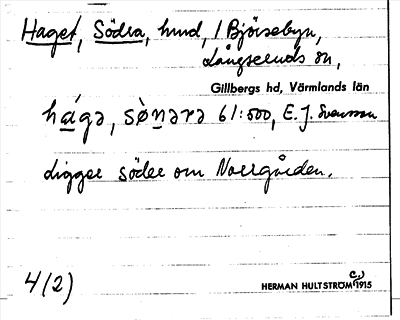 Haget, Södra, hmd, / Björsebyn,
Långseruds sn,
Gillbergs hd, Värmlands län
hága, sö̀nara 61:500, E. J. Svensson
ligger söder om Norrgården.
4(2)
HERMAN HULTSTRÖM c.) 1915